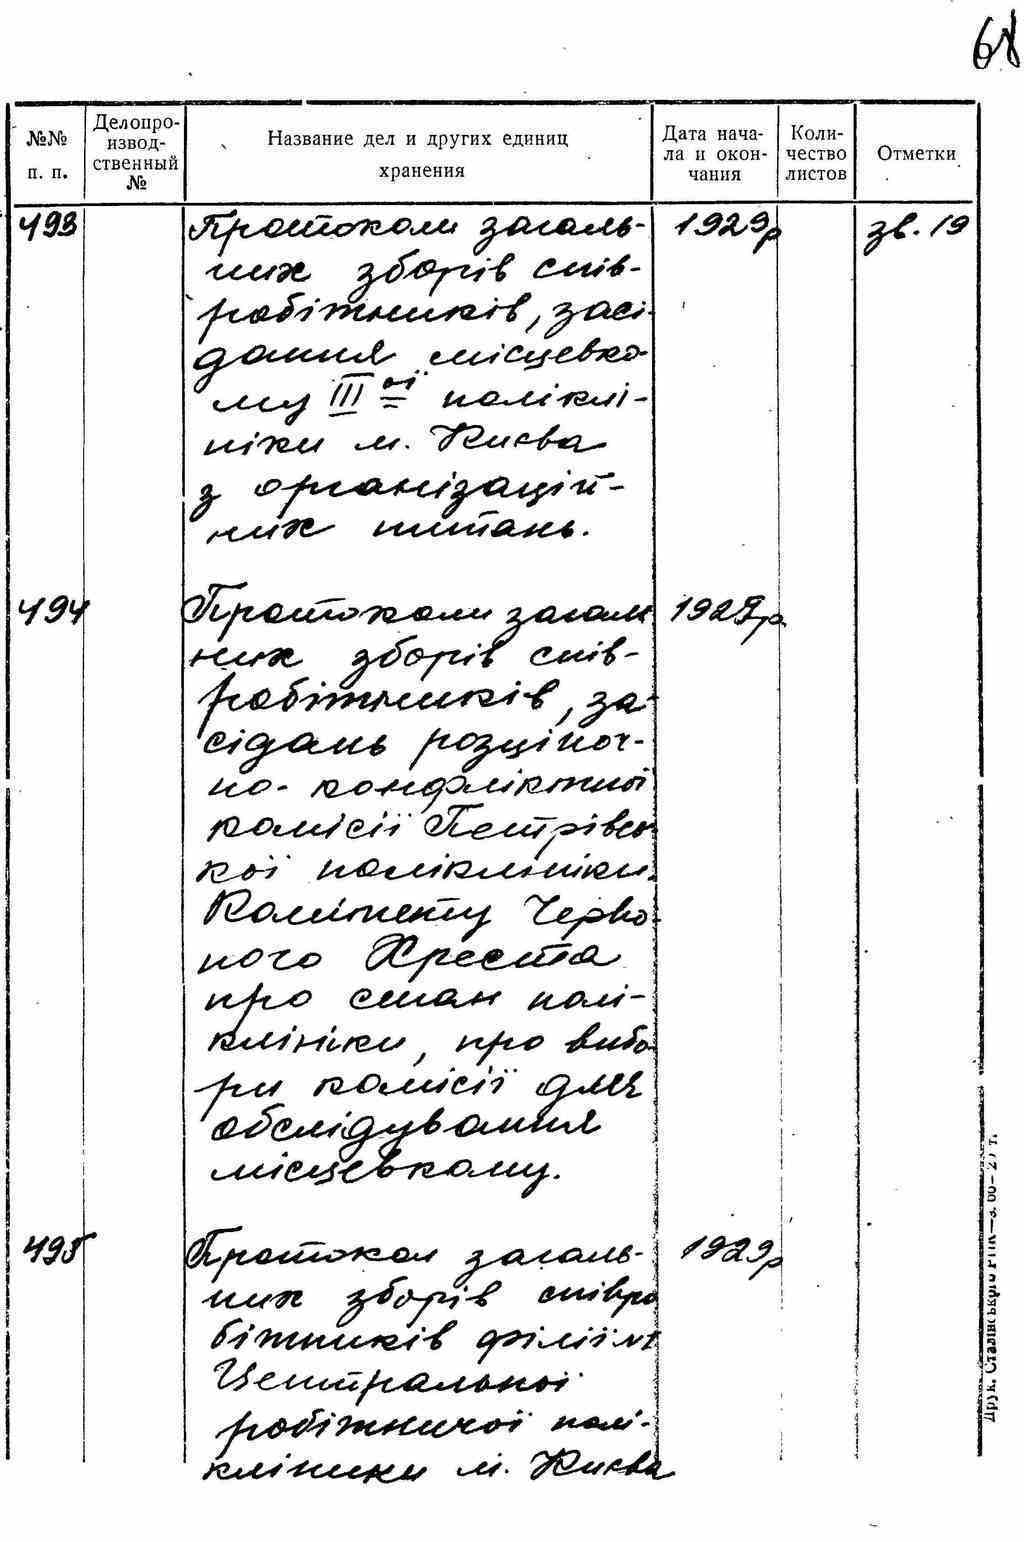 68
№№ п. п.
Делопро-
извод-
ственный
№
Название дел и других единиц
хранения
Дата нача-
ла и окон-
чания
Коли-
чество
листов
Отметки
493 Протоколи загаль- 1929р зв. 19
них зборів спів-
робітників, засі-
дання місцевко-
му III ої полiклi-
ніки м. Києва
з організацій-
них питань.
494 Протоколи загаль 1929р.
них зборів спів-
робітників, за-
сідань розціноч-
но-конфліктної
комісії Петрівсь-
кої поліклініки
Комітету Черво-
ного Хреста
про стан полі-
клініки, про вибо-
ри комісії для
обслідування
місцевкому.
495 Протокол загаль- 1929р
них зборів співро
бітників філії №1
Центральної
робітничої полі-
клініки м. Києва
Друк. Сталінського